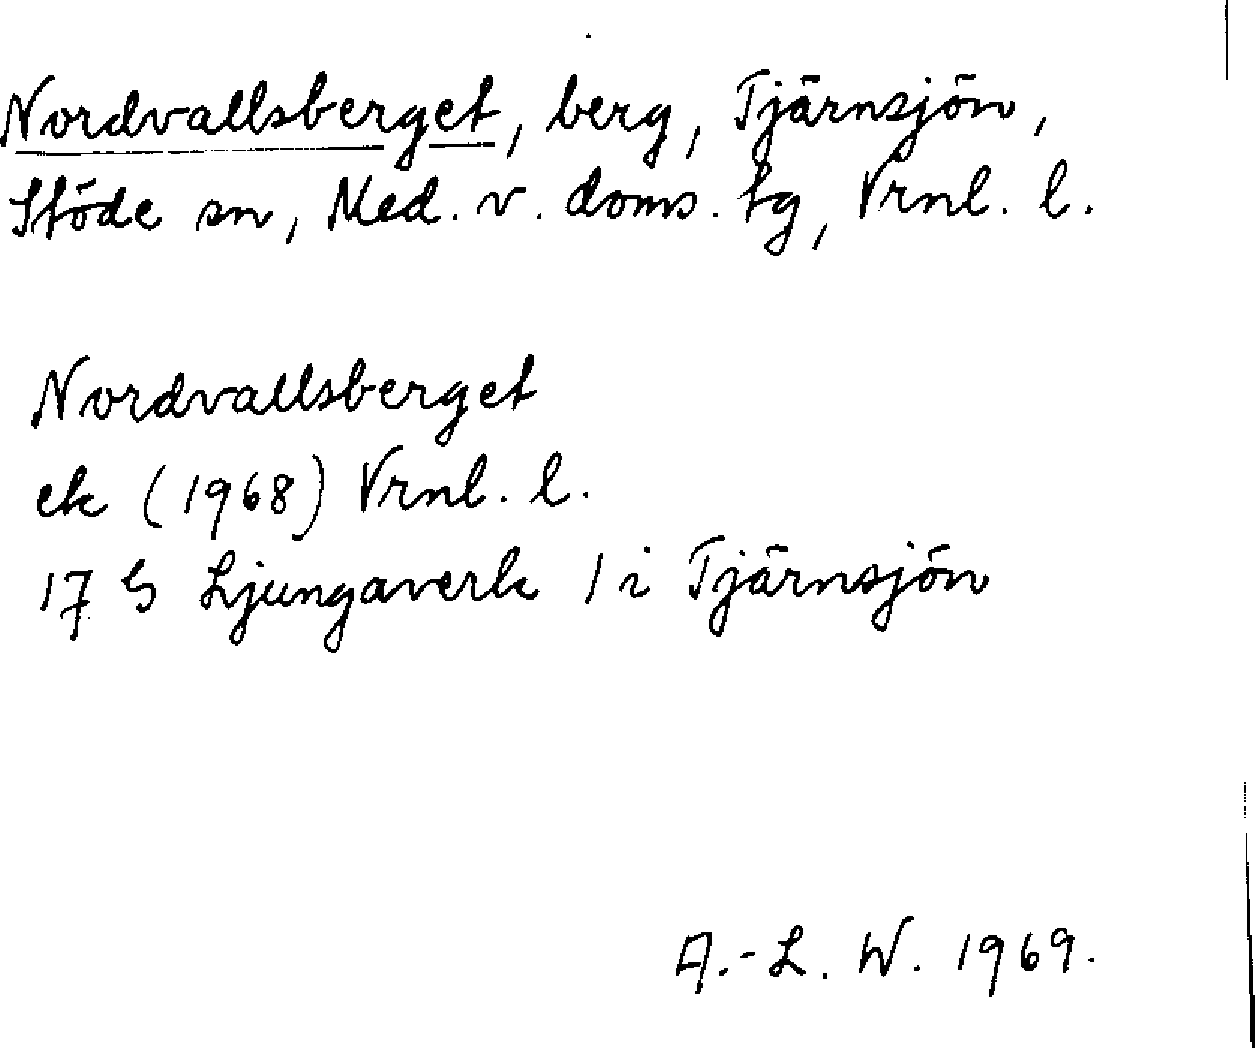 Nordvallsberget, berg, Tjärnsjön,
Stöde sn, Med. v. doms. tg, Vrnl. l.
Nordvallsberget
ek (1968) Vrnl. l.
17 G Ljungaverk 1 i Tjärnsjön
A.-L. W. 1969.